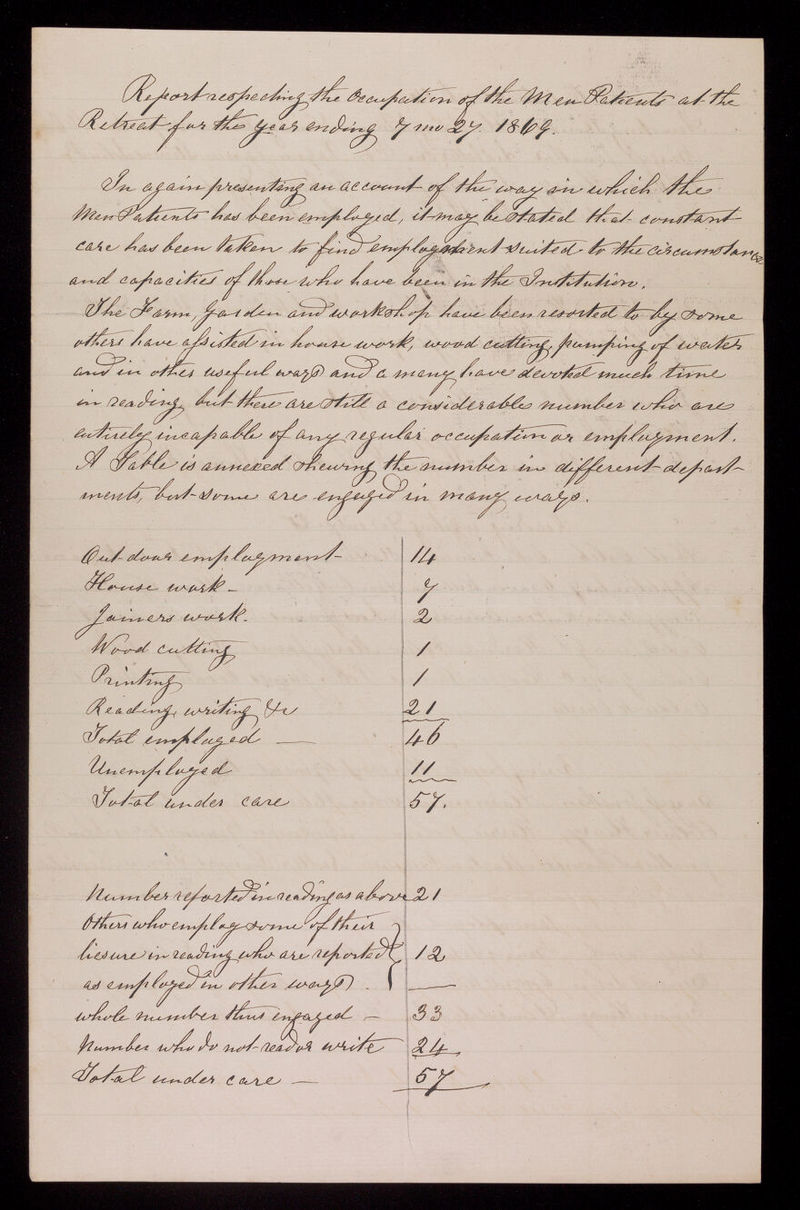 Report respecting the Occupation of the Men Patients at the
Retreat for the year ending 7 mo 27. 1869.
In again presenting an account of the way in which the
Men Patients has been employed, it may be stated that constant
care has been taken to find employment suited to the circumstances
and capacities of those who have been in the Institution.
The Farm, Garden and workshop have been resorted to by some
others have assisted in house work, wood cutting, pumping of water
and in other useful ways and a many have devoted much time
in reading, but there are still a considerable number who are
entirely incapable of any regular occupation or employment.
A Table is annexed shewing the number in different depart-
ments, but some are engaged in many ways.
Out door employment - 14
House work - 7
Joiners work. 2
Wood cutting 1
Printing 1
Reading, writing &c 21
Total employed — 46
Unemployed 11
Total under care 57.
Number reported in reading as above 21
Others who employ some of their
liesure in reading who are reported 12
as employed in other ways.
whole number thus engaged — 33
Number who do not read or write 24
Total under care — 57